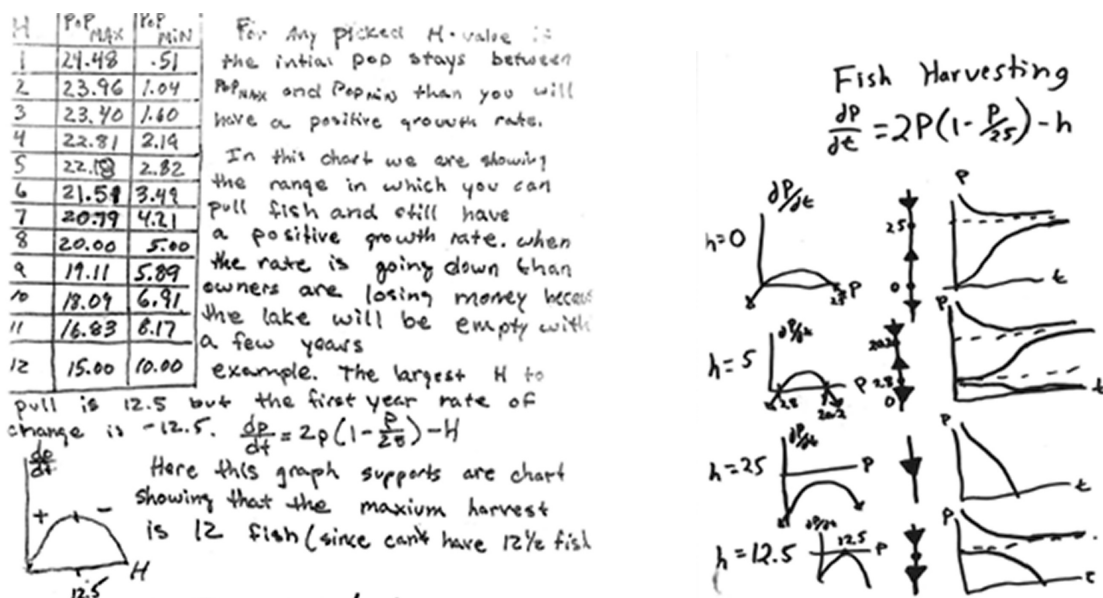 H PoP MAX PoP MIN
1 24.48 .51
2 23.96 1.04
3 23.40 1.60
4 22.81 2.19
5 22.18 2.82
6 21.51 3.49
7 20.79 4.21
8 20.00 5.00
9 19.11 5.89
10 18.09 6.91
11 16.83 8.17
12 15.00 10.00
For Any picked H-value is
the intial pop stays between
POP MAX and Pop MIN than you will
have a positive growth rate.
In this chart we are showing
the range in which you can
pull fish and still have
a positive growth rate. when
the rate is going down than
owners are losing money
the lake will be empty with
a few years
example. The largest H to
pull is 12.5 but the first year rate of
change is -12.5. dp/dt = 2p(1-p/25)-H
dp/dt
+ -
12.5
H
Here this graph supports are chart
showing that the maxium harvest
is 12 fish (since can't have 12 1/2 fish
Fish Harvesting
dP/dt = 2P(1-P/25)-h
h=0
dP/dt
25 P
25
0
P
t
h=5
dP/dt
2.8 20.2 P
20.2
2.8
0
P
t
h=25
dP/dt
P
P
t
h=12.5
dP/dt
12.5 P
P
t